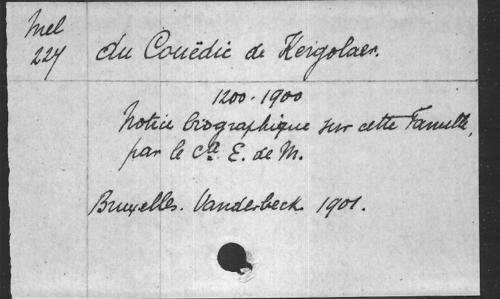 Mel
227
du Couëdic de Kergolaer.
1200-1900
Notice biographique sur cette Famille,
par le Cte E. de M.
Bruxelles. Vanderbeck 1901.